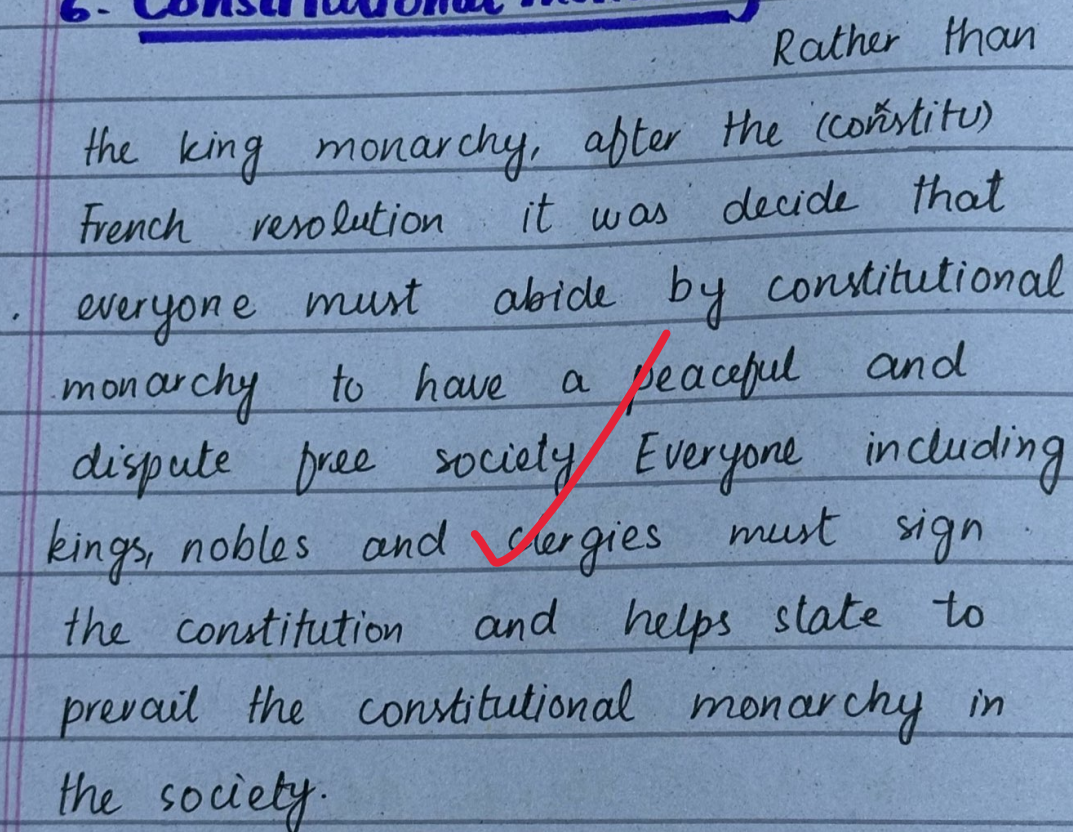 6. Constitutional monarchy
Rather than
the king monarchy, after the (constitu)
French resolution it was decide that
everyone must abide by constitutional
monarchy to have a peaceful and
dispute free society Everyone including
kings, nobles and clergies must sign
the constitution and helps state to
prevail the constitutional monarchy in
the society.